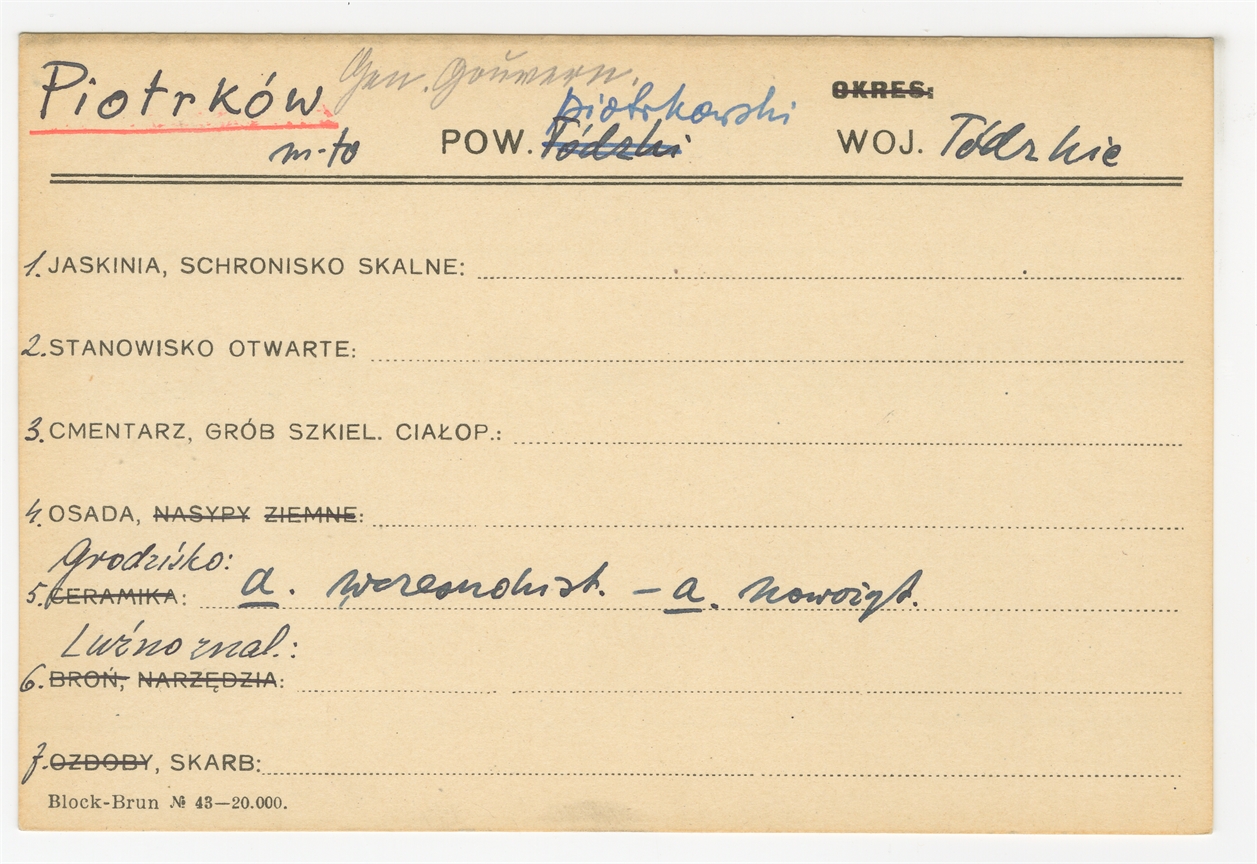 Piotrków Gen. Gouvern. OKRES:
m-to POW. Łódzki piotrkowski WOJ. Łódzkie
1. JASKINIA, SCHRONISKO SKALNE:
2. STANOWISKO OTWARTE:
3. CMENTARZ, GRÓB SZKIEL. CIAŁOP.:
4. OSADA, NASYPY ZIEMNE:
Grodzisko:
5. CERAMIKA: a. wczesnohist. – a. nowożyt.
Luźno znal.:
6. BROŃ, NARZĘDZIA:
7. OZDOBY, SKARB:
Block-Brun № 43—20.000.